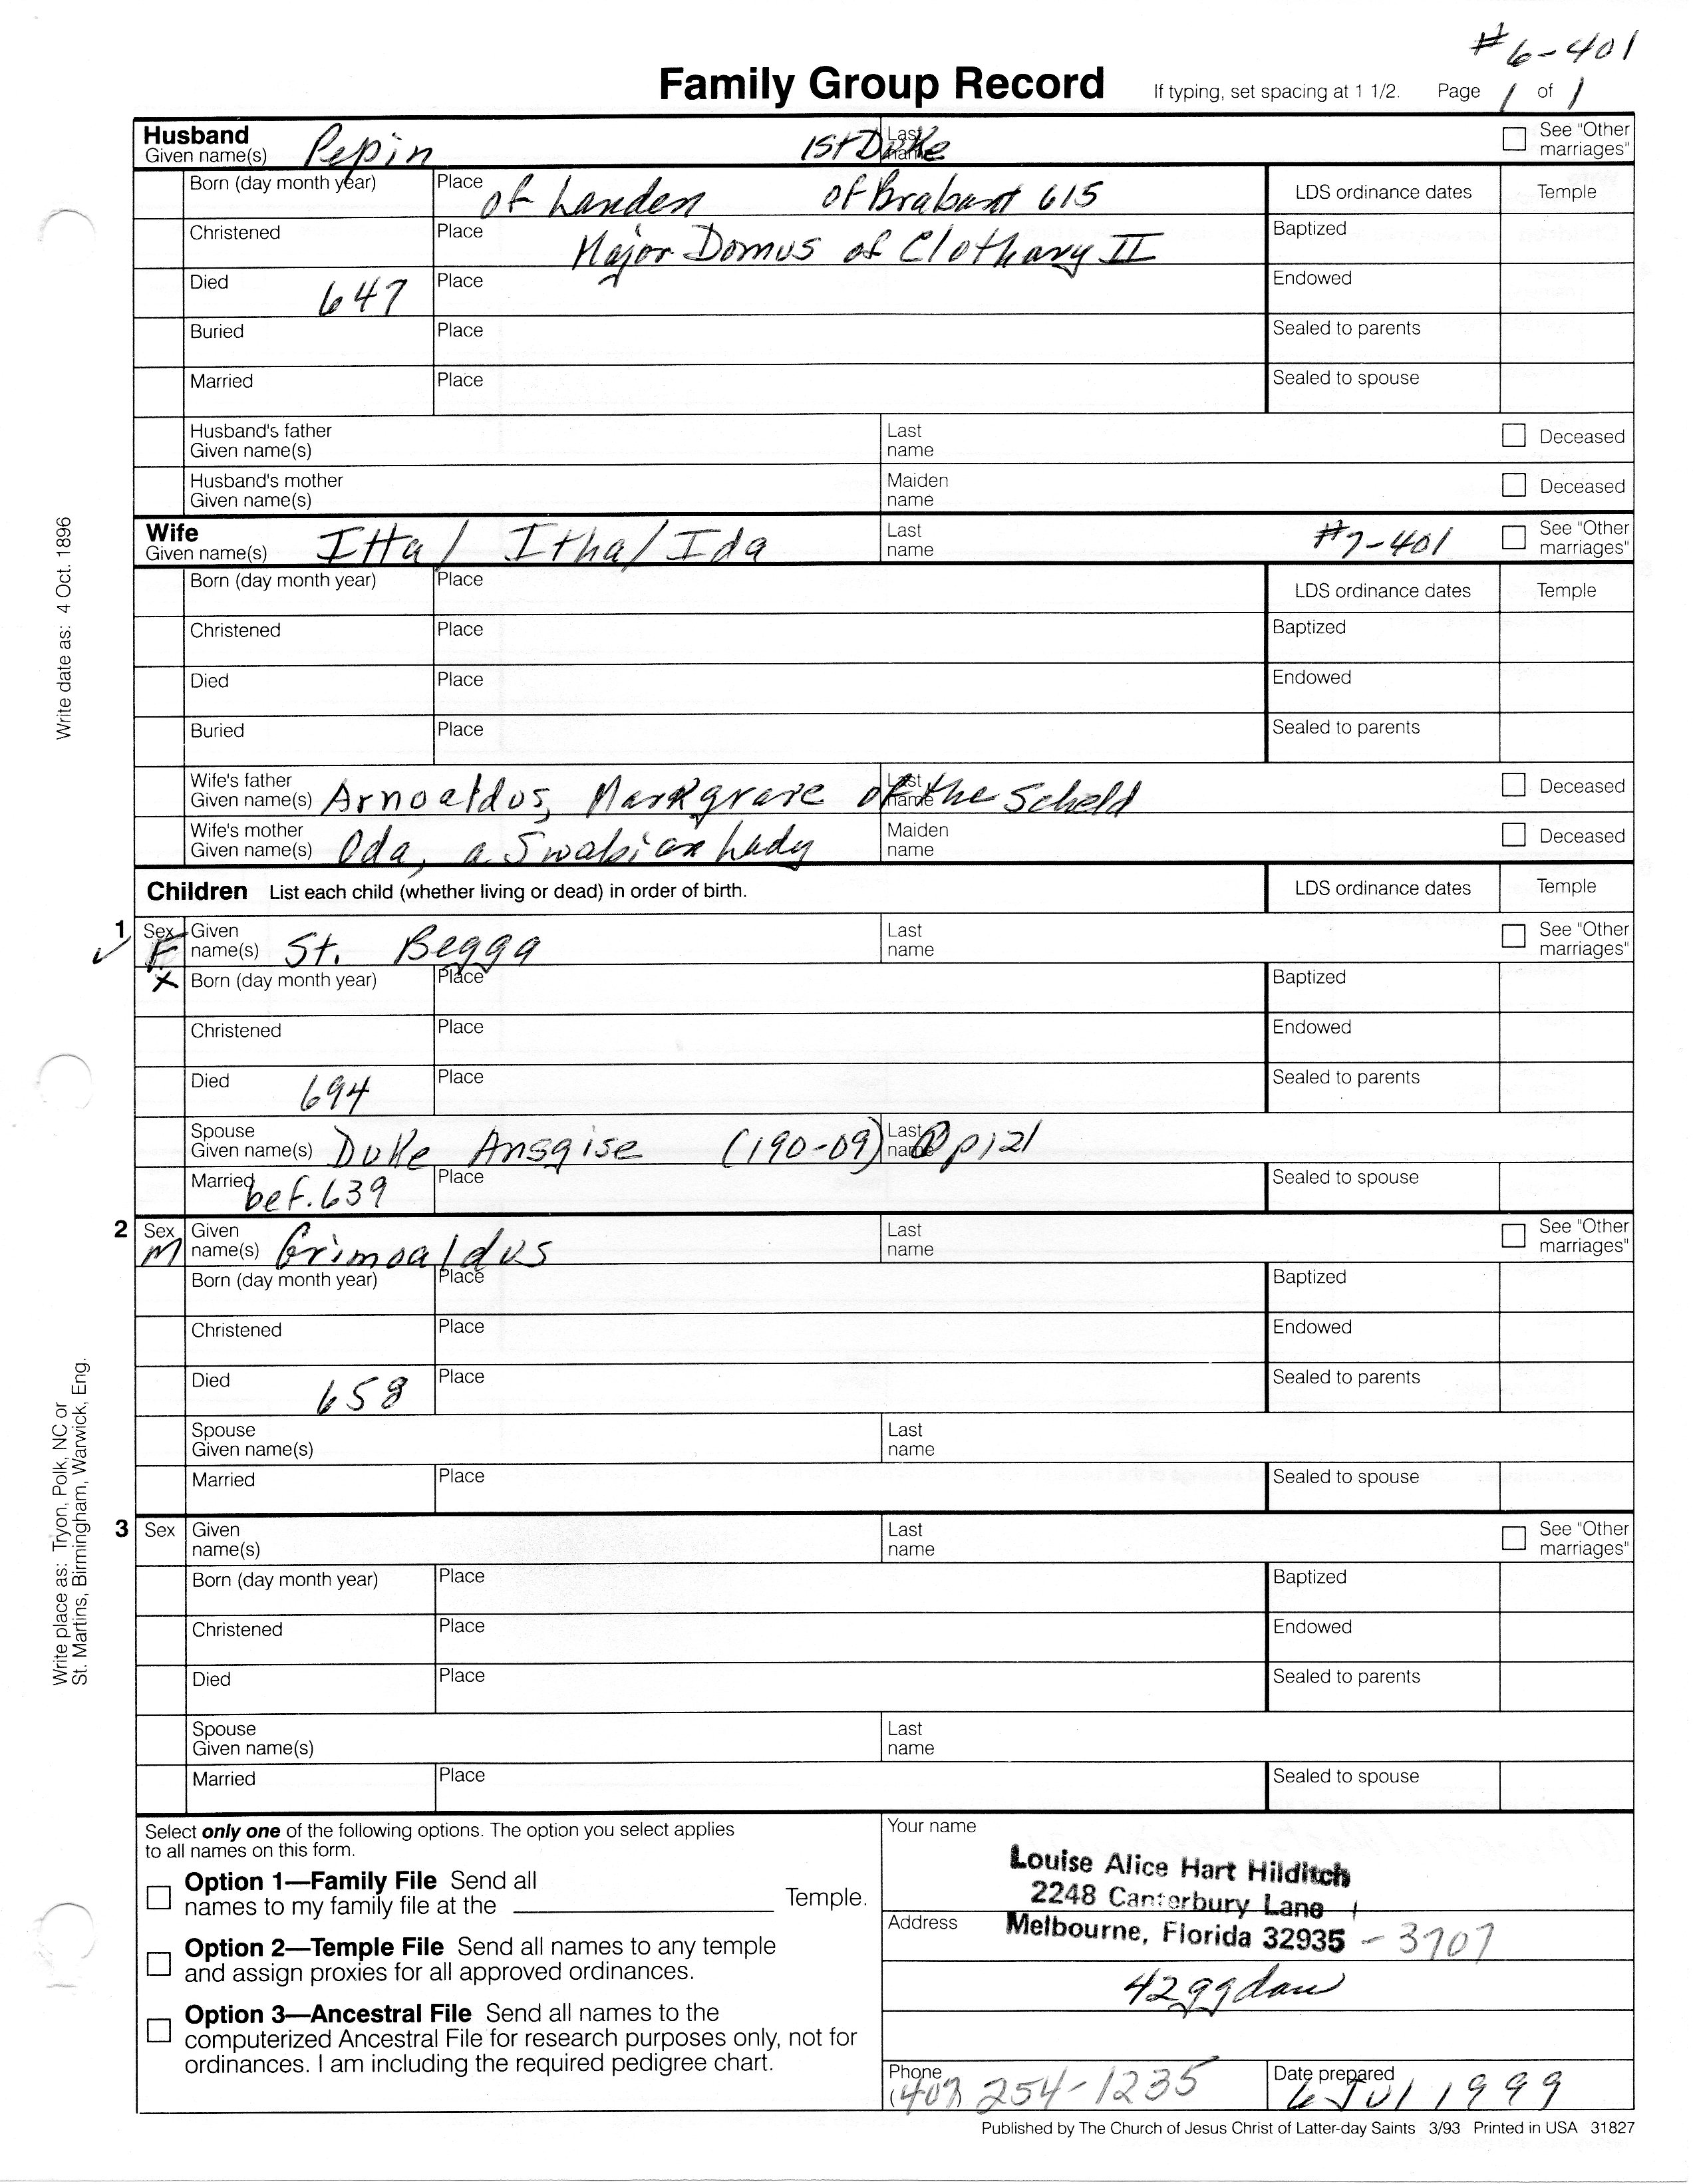 #6-401
Family Group Record If typing, set spacing at 1 1/2. Page 1 of 1
Husband
Given name(s) Pepin 1st Duke Last name See "Other marriages"
Born (day month year) Place of Landen of Brabant 615 LDS ordinance dates Temple
Christened Place Major Domus of Clothary II Baptized
Died 647 Place Endowed
Buried Place Sealed to parents
Married Place Sealed to spouse
Husband's father Given name(s) Last name Deceased
Husband's mother Given name(s) Maiden name Deceased
Wife
Given name(s) Itta/ Itha/ Ida Last name #7-401 See "Other marriages"
Born (day month year) Place LDS ordinance dates Temple
Christened Place Baptized
Died Place Endowed
Buried Place Sealed to parents
Wife's father Given name(s) Arnoaldus, Markgrave of the Scheld Last name Deceased
Wife's mother Given name(s) Oda, a Swabian Lady Maiden name Deceased
Children List each child (whether living or dead) in order of birth. LDS ordinance dates Temple
1 Sex F Given name(s) St. Begga Last name See "Other marriages"
X Born (day month year) Place Baptized
Christened Place Endowed
Died 694 Place Sealed to parents
Spouse Given name(s) Duke Ansgise (190-09) Last name p121
Married bef. 639 Place Sealed to spouse
2 Sex M Given name(s) Grimoaldus Last name See "Other marriages"
Born (day month year) Place Baptized
Christened Place Endowed
Died 658 Place Sealed to parents
Spouse Given name(s) Last name
Married Place Sealed to spouse
3 Sex Given name(s) Last name See "Other marriages"
Born (day month year) Place Baptized
Christened Place Endowed
Died Place Sealed to parents
Spouse Given name(s) Last name
Married Place Sealed to spouse
Select only one of the following options. The option you select applies
to all names on this form.
Option 1—Family File Send all
names to my family file at the Temple.
Option 2—Temple File Send all names to any temple
and assign proxies for all approved ordinances.
Option 3—Ancestral File Send all names to the
computerized Ancestral File for research purposes only, not for
ordinances. I am including the required pedigree chart.
Your name
Louise Alice Hart Hilditch
2248 Canterbury Lane
Address Melbourne, Florida 32935 - 3707
42ggdau
Phone (407) 254-1235 Date prepared 6 Jul 1999
Published by The Church of Jesus Christ of Latter-day Saints 3/93 Printed in USA 31827
Write date as: 4 Oct. 1896
Write place as: Tryon, Polk, NC or
St. Martins, Birmingham, Warwick, Eng.